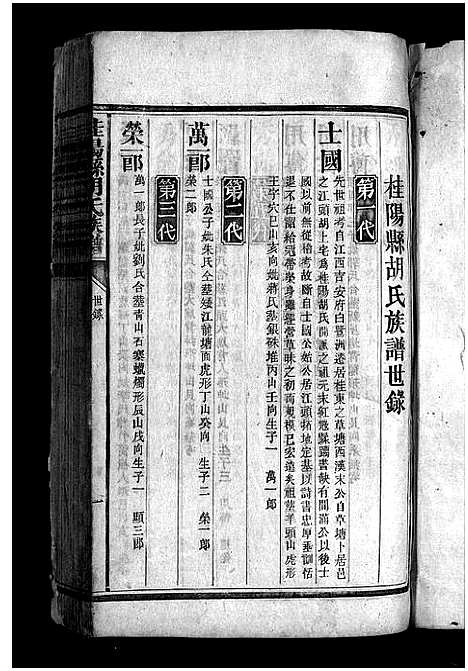 桂陽縣胡氏族譜世錄
第一代
士國
先世祖考自江西吉安府白鷺洲遷居桂東之草塘西漢末公自草塘卜居邑
之江頭胡上宅為桂陽胡氏開派之祖元末紅寇縣譜書缺有間滿公以士
國以前無從稽考故斷自士國公始公居江頭拓地定基以詩書忠厚垂訓恬
退不仕簡給冠帶榮身雖年當草昧之初而規模已宏遠矣祖塟羊頭山虎形
壬字穴巳山亥向妣蔣氏塟銀硃堆丙山壬向生子一　萬一郎
第二代
萬一郎
士國公子妣朱氏仝塟矮江前塘面虎形丁山癸向　生子二　榮一郎
榮二郎
第三代
榮一郎
萬一郎長子妣劉氏合塟青山石寨蠟燭形辰山戌向生子一　顯三郎
桂陽縣胡氏族譜
世錄
一